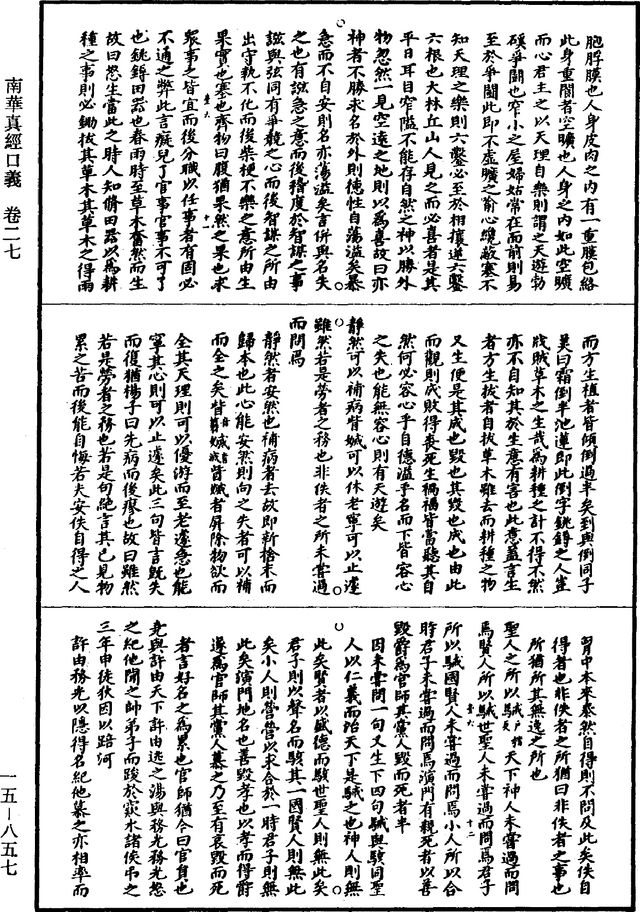 南華真經口義　卷二七
一五—八五七
胞脬膜也人身皮肉之內有一重膜包絡
此身重閬者空曠也人身之內如此空曠
而心君主之以天理自樂則謂之天遊勃
磎爭鬬也窄小之屋婦姑常在面前則易
至於爭鬬此即不虛曠之喻心纔蔽塞不
知天理之樂則六鑿必至於相攘逆六鑿
六根也大林丘山人見之而必喜者是其
平日耳目窄隘不能存自然之神以勝外
物忽然一見空遠之地則以為喜故曰亦
神者不勝求名於外則德性自蕩溢矣暴
急而不自安則名亦蕩溢矣言併與名失
之也有誸急之意而後稽度於智謀之事
誸與弦同有爭競之心而後智謀之所由
出守執不化而後柴梗不樂之意所由生
果實也塞也齊物曰腹猶果然之果也求
眾事之皆宜而後分職以任事者有固必
不通之弊此言癡兒了官事官事不可了
也銚鎒田器也春雨時至草木奮然而生
故曰怒生當此之時人知脩田器以為耕
種之事則必鋤拔其草木其草木之得雨
而方生植者皆傾倒過半矣到與倒同子
美曰霜倒半池蓮即此倒字銚鎒之人豈
戕賊草木之生哉為耕種之計不得不然
亦不自知其於生意有害也此意蓋言生
者方生拔者自拔草木雖去而耕種之物
又生便是其成也毀也其毀也成也由此
而觀則成敗得喪死生禍福皆當聽其自
然何必容心乎自德溢乎名而下皆容心
之失也能無容心則有天遊矣
靜然可以補病眥㓕可以休老寧可以止遽
雖然若是勞者之務也非佚者之所未嘗過
而問焉
靜然者安然也補病者去故即新捨末而
歸本也此心能安然則向之失者可以補
而全之矣眥㓕眥㓕者屏除物欲而
全其天理則可以優游而至老遽急也能
寧其心則可以止遽矣此三句皆言既失
而復猶楊子曰先病而後瘳也故曰雖然
若是勞者之務也若是句絕言其已見物
累之苦而後能自悔若夫安佚自得之人
胷中本來泰然自得則不問及此矣佚自
得者也非佚者之所猶曰非佚者之事也
所猶所其無逸之所也
聖人之所以駴天下神人未嘗過而問
焉賢人所以駴世聖人未嘗過而問焉君子
所以駴國賢人未嘗過而問焉小人所以合
時君子未嘗過而問焉演門有親死者以善
毀爵為官師其黨人毀而死者半
因未嘗問一句又生下四句駴與駭同聖
人以仁義而治天下是駴之也神人則無
此矣賢者以盛德而駭世聖人則無此矣
君子則以聲名而駭其一國賢人則無此
矣小人則營營以求合於一時君子則無
此矣演門地名也善毀孝也以孝而得爵
遂為官師其黨人慕之乃至有哀毀而死
者言好名之為累也官師猶今曰官員也
堯與許由天下許由逃之湯與務光務光怒
之紀他聞之帥弟子而踆於窾水諸侯弔之
三年申徒狄因以踣河
許由務光以隱得名紀他慕之亦相率而